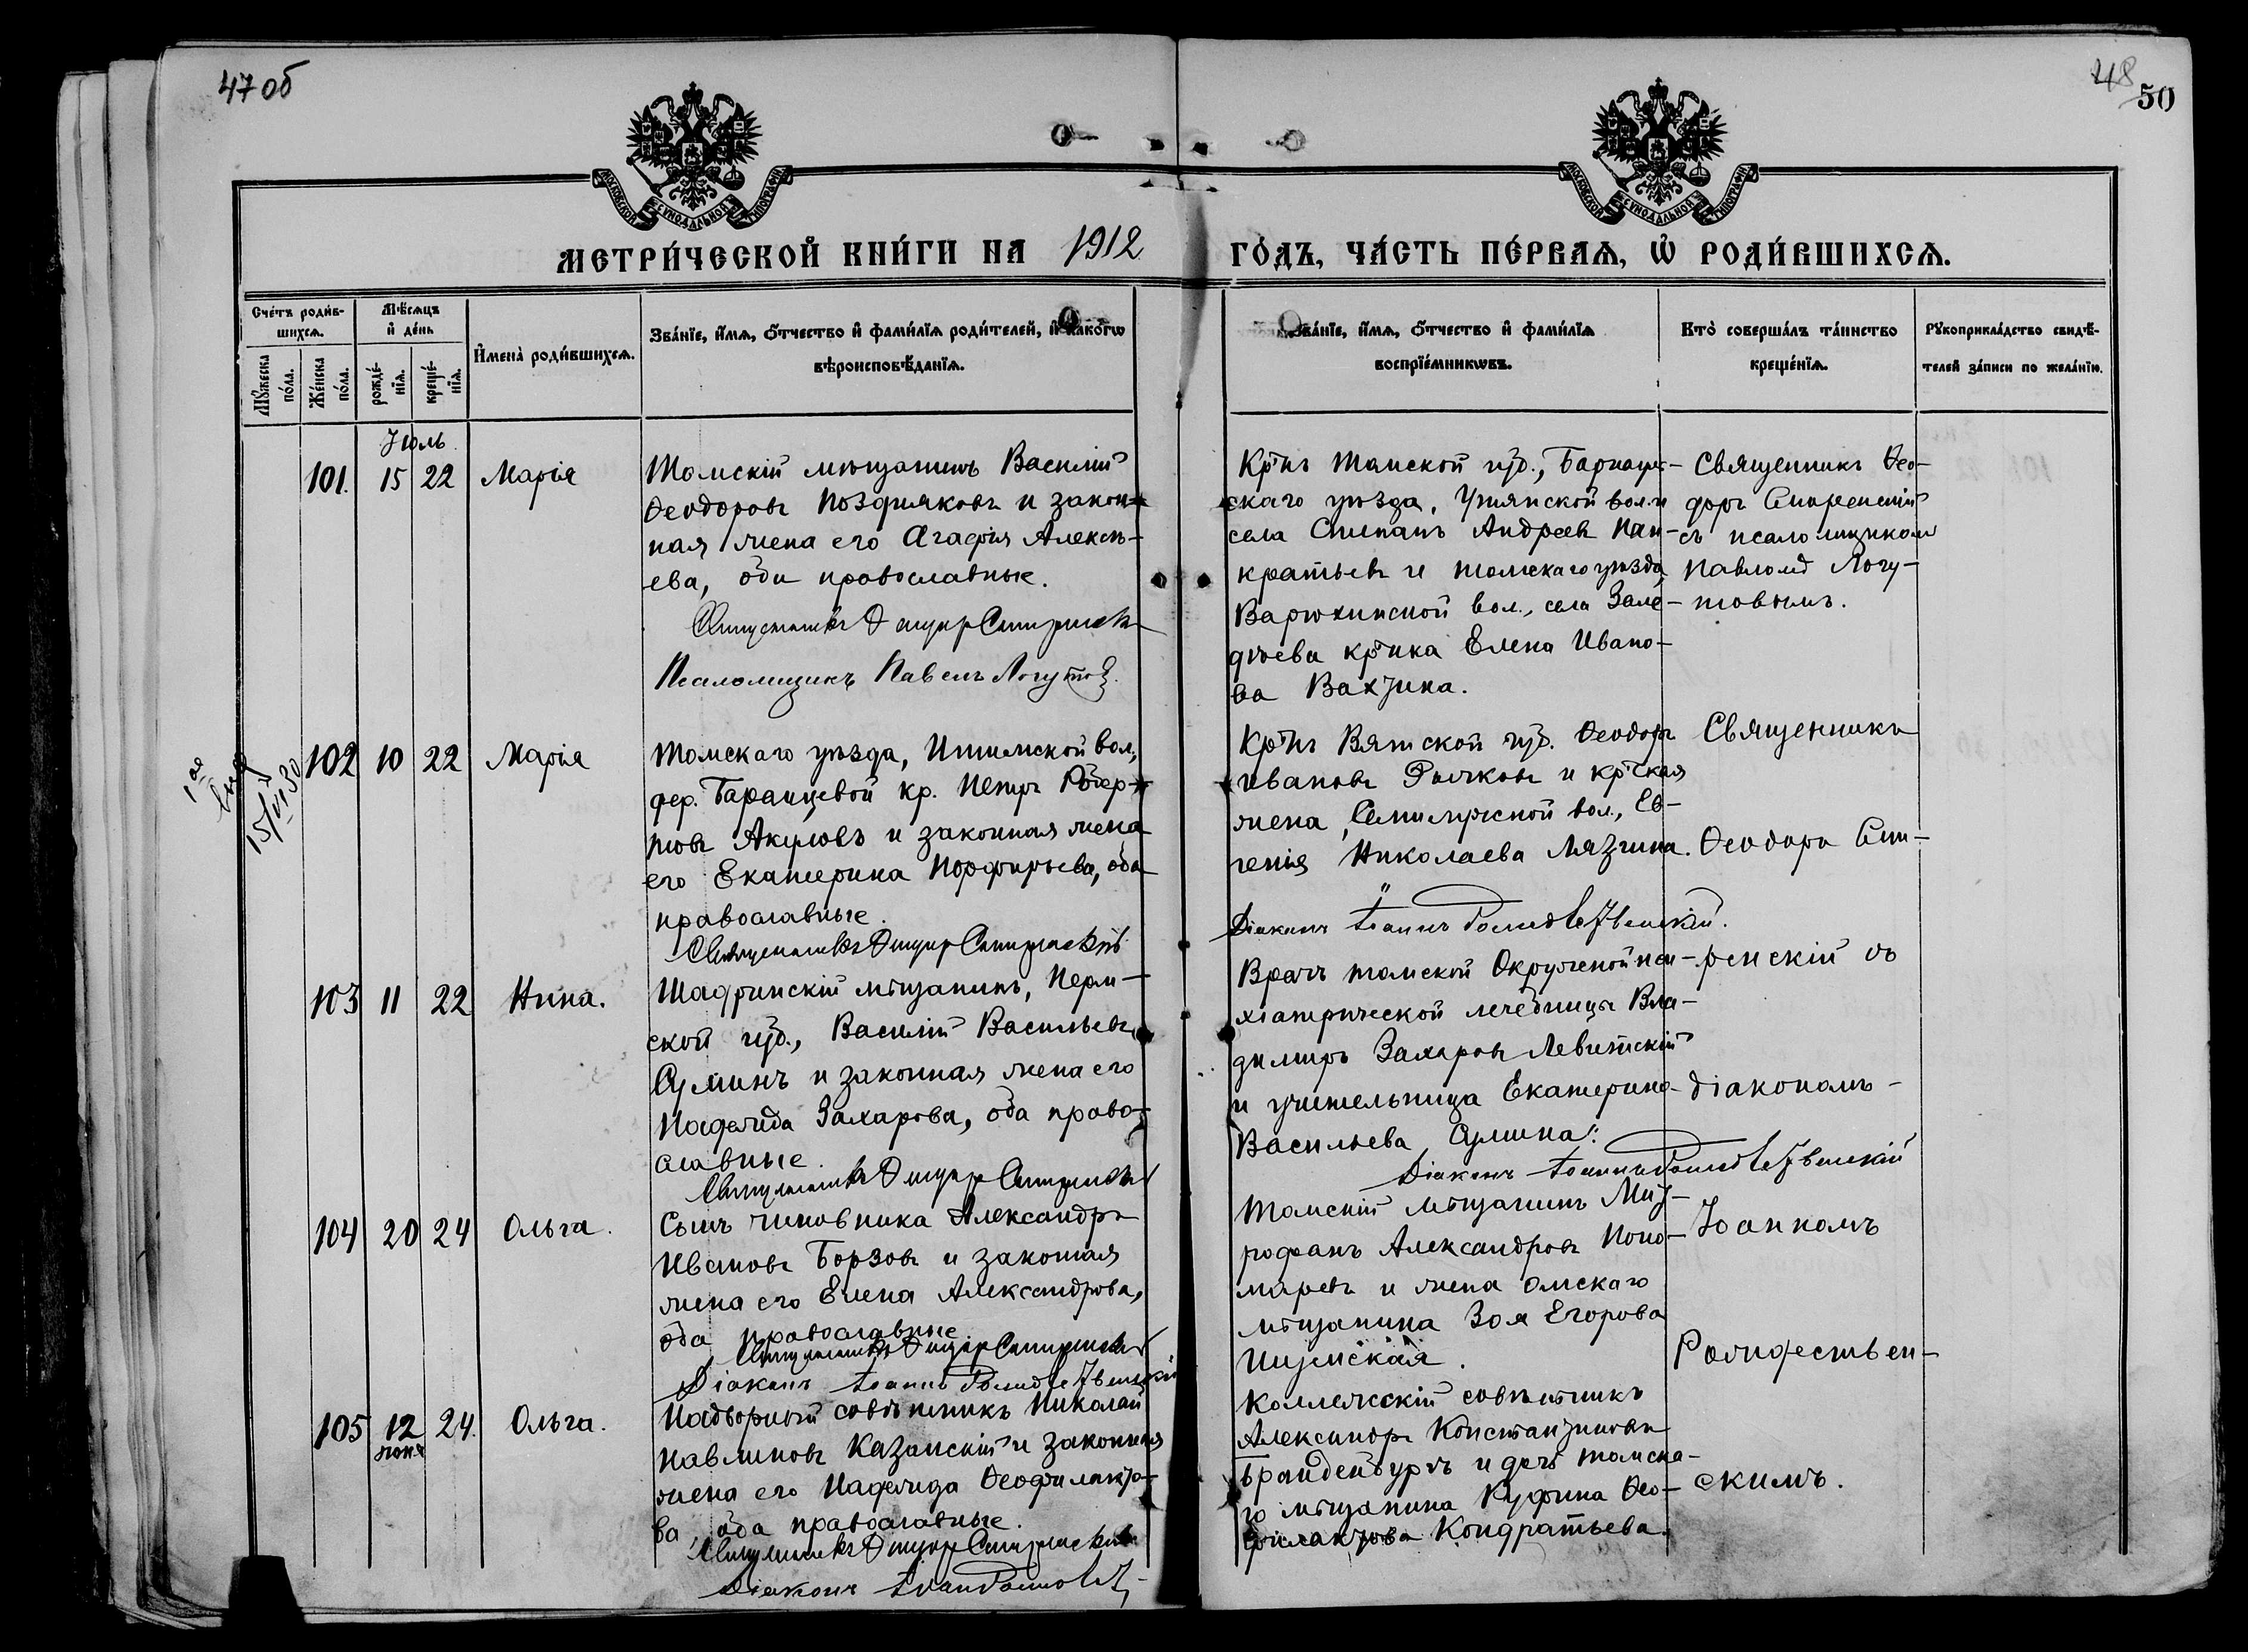 47 об
48
50
МОСКОВСКОЙ СѴНОДАЛЬНОЙ ТИПОГРАФІИ
МОСКОВСКОЙ СѴНОДАЛЬНОЙ ТИПОГРАФІИ
МЕТРИ́ЧЕСКОЙ КНИ́ГИ НА 1912 ГО́ДЪ, ЧА́СТЬ ПЕ́РВАЯ, Ѡ РОДИ́ВШИХСЯ.
Сче́тъ роди́в-
шихся.
Мꙋ́жеска
по́ла.
Же́нска
по́ла.
Мѣ́сяцъ
и де́нь
рожде́-
нїя.
креще́-
нїя.
И҆мена̀ роди́вшихся.
Зва́нїе, и҆́мя, ѻ҆́тчество и҆ фами́лїя роди́телей, и҆ како́гѡ
вѣроисповѣ́данїя.
Зва́нїе, и҆́мя, ѻ҆́тчество и҆ фами́лїя
воспрїе́мникѡвъ.
Кто̀ соверша́лъ та́инство
креще́нїя.
Рꙋкоприкла́дство свидѣ́-
телей за́писи по жела́нїю.
Июль
101. 15 22 Марія
Томскій мѣщанинъ Василій
Ѳеодоровъ Поздняковъ и закон-
ная жена его Агафія Алексѣ-
ева, оба православные.
Священникъ
Псаломщикъ Павелъ Логутов.
Кр-нъ Томской губ., Барнауль-
скаго уѣзда,
села Степанъ Андреевъ Пан-
кратьевъ и томскаго уѣзда,
Варюхинской вол., села Зале-
дѣева кр-нка Елена Ивано-
ва Вахрина.
Священникъ Ѳео-
доръ Смиренскій
съ псаломщикомъ
Павломъ Логу-
товымъ.
1ая
15/VI 30
102 10 22 Марія
Томскаго уѣзда, Ишимской вол.,
дер. Баранцевой кр. Петръ
Акуловъ и законная жена
его Екатерина Порфирьева, оба
православные.
Священникъ
Кр-нъ Вятской губ. Ѳеодоръ
Ивановъ Рычковъ и кр-ская
жена, Семилужной вол., Ев-
генія Николаева Лязгина.
Діаконъ Іоаннъ Рождественскій.
Священникъ
Ѳеодоръ Сми-
103 11 22 Нина.
Шадринскій мѣщанинъ, Перм-
ской губ., Василій Васильевъ
Суминъ и законная жена его
Надежда Захарова, оба право-
славные.
Священникъ
Врачъ томской Окружной пси-
хіатрической лечебницы Вла-
димиръ Захаровъ Левитскій
и учительница Екатерина
Васильева Сумина.
Діаконъ Іоаннъ Рождественскій
ренскій съ
діакономъ
104 20 24 Ольга.
Сынъ чиновника Александръ
Ивановъ Борзовъ и законная
жена его Елена Александрова,
оба православные.
Священникъ
Діаконъ Іоаннъ Рождественскій
Томскій мѣщанинъ Мит-
рофанъ Александровъ Поно-
маревъ и жена омскаго
мѣщанина Зоя Егорова
Іоанномъ
Рождествен-
105 12 24. Ольга.
Надворный совѣтникъ Николай
Павлиновъ Казанскій и законная
жена его Надежда Ѳеофилакто-
ва, оба православные.
Священникъ
Діаконъ
Коллежскій совѣтникъ
Александръ Константиновъ
Бранденбургъ и дочь томска-
го мѣщанина Руфина Ѳео-
филактова Кондратьева.
скимъ.